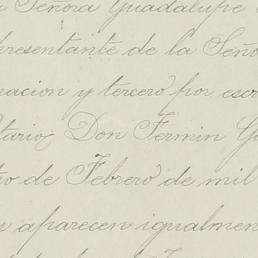 Señora Guadalupe
presentante de la Seño
nacion y tercero por escr
tario, Don Fermin G
de Febrero de mil
aparecen igualmen